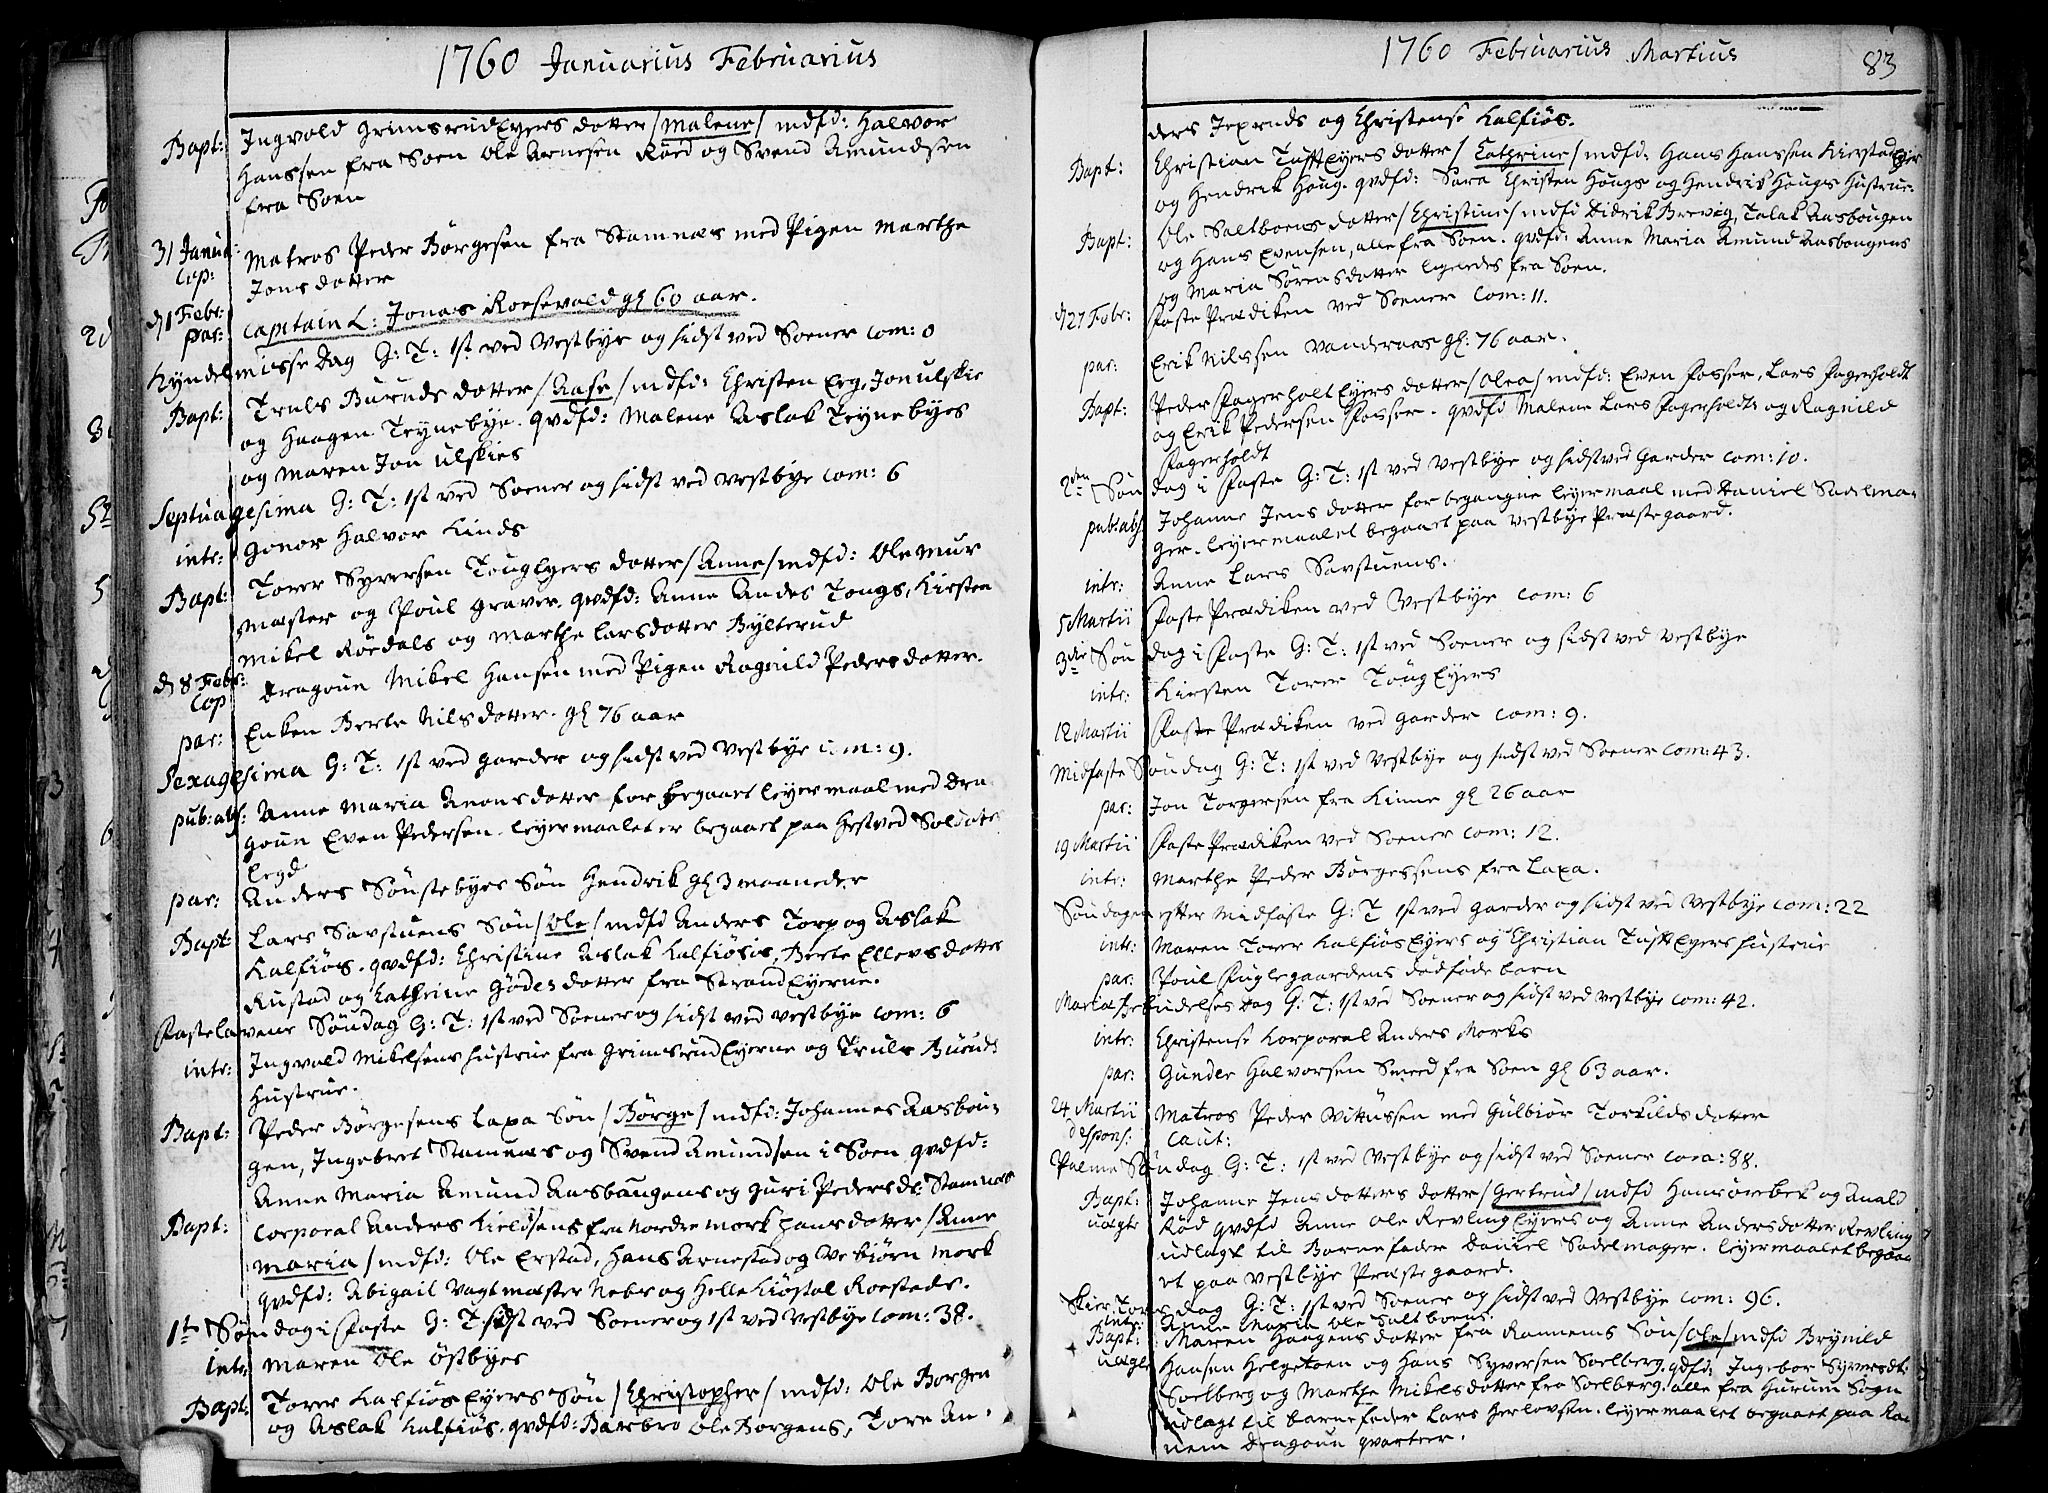 1760 Januarius Februarius
Bapt: Ingvold GrimsrudEyers dotter /Malene/ mdfd: Halvor
Hanssen fra Soen Ole Arnesen Röed og Svend Amundsen
fra Soen
31 Janua: Matros Peder Börgesen fra Stamnæs med Pigen Marthe
Cop: Jonsdotter
d 1 Febr: par: Capitain L: Jonas Roosevold gl 60 aar.
Kyndelmisse Dag G: T: 1st ved Vestbye og sidst ved Soener Com: 0
Bapt: Truls Buruds dotter /Aase/ mdfd: Christen Erg, Jon Ulskie
og Haagen Teynebye. qvdfd: Malene Aslak Teynebyes
og Maren Jon Ulskies
Septuagesima G: T: 1st ved Soener og sidst ved Vestbye Com: 6
intr: Gonor Halvor Kinds
Bapt: Torer Syversen TougEyers dotter /Anne/ mdfd: Ole Mur
Mæster og Poul Graver. qvdfd: Anne Andes Tougs, Kirsten
Mikel Röedals og Marthe Larsdotter Bylterud
d 8 Febr: Cop Dragoun Mikel Hansen med Pigen Ragnild Pedersdotter.
par: Enken Berte Nilsdotter. gl 76 aar
Sexagesima G: T: 1st ved Garder og sidst ved Vestbye Com: 9.
pub: abs: Anne Maria Aronsdotter for begaaet leyermaal med Dra
goun Even Pedersen. leyermaalet er begaaet paa Hestved Soldate
legd
par: Anders Sönstebyes Sön Hendrik gl 3 maaneder
Bapt: Lars Savstuens Sön /Ole/ mdfd Anders Torp og Aslak
Kalfiös. qvdfd: Christine Aslak Kalfiöses, Berte Ellevsdotter
Rustad og Cathrine Gödesdotter fra StrandEyerne.
Fastelavens Söndag G: T: 1st ved Soener og sidst ved Vestbye Com: 6
intr: Ingvold Mikelsens hustrue fra GrimsrudEyerne og Truls Buruds
Hustrue.
Bapt: Peder Börgesens Laxa Sön /Börge/ mdfd: Johannes Aasbou,
gen, Ingebret Stamnæs og Svend Amundsen i Soen qvdfd:
Anne Maria Amund Aasbaugens og Guri Pedersdr: Stamnæs
Bapt: Corporal Anders Kieldsens fra Nordre Mork hans dotter /Anne
Maria/ mdfd: Ole Erstad, Hans Arnestad og Vebiörn Mork
qvdfd: Abigail Vagtmæster Nebs og Helle Kiöstol Roestads.
1te Söndag i Faste G: T: sidst ved Soener og 1st ved Vestbye Com: 38.
intr: Maren Ole Östbyes
Bapt: Torer KalfiösEyers Sön /Christopher/ mdfd: Ole Borgen
og Aslak Kalfiös. qvdfd: Barbro Ole Borgens, Tore An,
1760 Februarius Martius 83
ders Texruds og Christense Kalfiös.
Bapt: Christian TuftEyers dotter /Cathrine/ mdfd: Hans Hanssen KierstadEyer
og Hendrik Houg. qvdfd: Sara Christen Hougs og Hendrik Hougs Hustrue.
Bapt: Ole Saltboens dotter /Christine/ mdfd Didrik Brevig, Talak Aasbougen
og Hans Evensen, alle fra Soen. qvdfd: Anne Maria Amund Aasbougens
og Maria Sörensdotter ligeledes fra Soen.
d 27 Febr: Faste Prædiken ved Soener Com: 11.
par: Erik Nilssen Vanderaas gl: 76 aar.
Bapt: Peder FagerholtEyers dotter /Olea/ mdfd: Even Fosser, Lars Fagerholdt
og Erik Pedersen Fosser. qvdfd Malene Lars Fagerholdts og Ragnild
Fagerholdt
2den Söndag i Faste G: T: 1st ved Vestbye og sidst ved Garder Com: 10.
pub: abs: Johanne Jensdotter for begangne leyermaal med Daniel Sadelma,
ger. leyermaalet begaaet paa Vestbye Præstegaard.
intr: Anne Lars Savstuens.
5 Martii Faste Prædiken ved Vestbye Com: 6
3die Söndag i Faste G: T: 1st ved Soener og sidst ved Vestbye
intr: Kirsten Torer TougEyers
12 Martii Faste Prædiken ved Garder Com: 9.
Midfaste Söndag G: T: 1st ved Vestbye og sidst ved Soener Com: 43.
par: Jon Torgersen fra Kinne gl 26 aar
19 Martii Faste Prædiken ved Soener Com: 12.
intr: Marthe Peder Börgessens fra Laxa.
Söndagen efter Midfaste G: T 1st ved Garder og sidst ved Vestbye Com: 22
intr: Maren Torer KalfiösEyers og Christian TuftEyers hustrue
par: Poul Fuglegaardens dödföde barn
Mariæ Bebudelses Dag G: T: 1st ved Soener og sidst ved Vestbye Com: 42.
intr: Christense Corporal Anders Morks
par: Gunder Halvorsen Smed fra Soen gl 63 aar.
24 Martii Matros Peder Vittussen med Gulbiör Torkildsdotter
despons: Caut:
Palme Söndag G: T: 1st ved Vestbye og sidst ved Soener Com: 88.
Bapt: Johanne Jensdotters dotter /Gertrud/ mdfd Hans Örebek og Anald
uægte Röd qvdfd Anne Ole RevlingEyers og Anne Andersdotter Revling
udlagt til Barnefader Daniel Sadelmager. leyermaalet begaa
et paa Vestbye Præstegaard.
Skier Torsdag G: T: 1st ved Soener og sidst ved Vestbye Com: 96.
intr: Anne Maria Ole Saltboens.
Bapt: Maren Haagensdotter fra Rannems Sön /Ole/ mdfd Brynild
uægte Hansen Helgetoen og Hans Syversen Soelberg. qvdfd: Ingebor Syversdr:
Soelberg og Marthe Mikelsdotter fra Soelberg. alle fra Hurum Sogn
udlagt til barnefader Lars Herlovsen. leyermaalet begaaet paa Ra
nem Dragoun qvarteer.